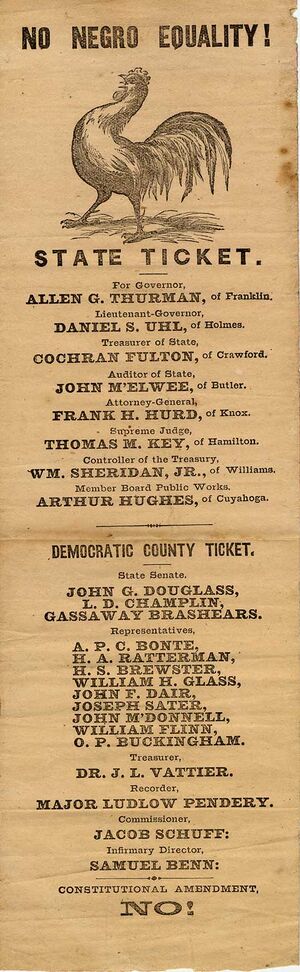 NO NEGRO EQUALITY!
STATE TICKET.
For Governor,
ALLEN G. THURMAN, of Franklin.
Lieutenant-Governor,
DANIEL S. UHL, of Holmes.
Treasurer of State,
COCHRAN FULTON, of Crawford.
Auditor of State,
JOHN M'ELWEE, of Butler.
Attorney-General,
FRANK H. HURD, of Knox.
Supreme Judge,
THOMAS M. KEY, of Hamilton.
Controller of the Treasury,
WM. SHERIDAN, JR., of Williams.
Member Board Public Works.
ARTHUR HUGHES, of Cuyahoga.
DEMOCRATIC COUNTY TICKET.
State Senate.
JOHN G. DOUGLASS,
L. D. CHAMPLIN,
GASSAWAY BRASHEARS.
Representatives,
A. P. C. BONTE,
H. A. RATTERMAN,
H. S. BREWSTER,
WILLIAM H. GLASS,
JOHN F. DAIR,
JOSEPH SATER,
JOHN M'DONNELL,
WILLIAM FLINN,
O. P. BUCKINGHAM.
Treasurer,
DR. J. L. VATTIER.
Recorder,
MAJOR LUDLOW PENDERY.
Commissioner,
JACOB SCHUFF:
Infirmary Director,
SAMUEL BENN:
CONSTITUTIONAL AMENDMENT,
NO!